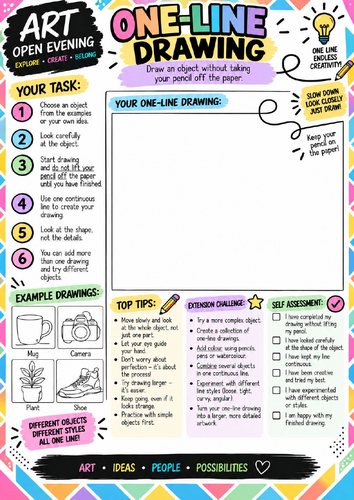 ART
OPEN EVENING
EXPLORE • CREATE • BELONG
ONE-LINE
DRAWING
Draw an object without taking
your pencil off the paper.
ONE LINE
ENDLESS
CREATIVITY!
SLOW DOWN
LOOK CLOSELY
JUST DRAW!
Keep your
pencil on
the paper!
YOUR TASK:
1 Choose an object
from the examples
or your own idea.
2 Look carefully
at the object.
3 Start drawing
and do not lift your
pencil off the paper
until you have finished.
4 Use one continuous
line to create your
drawing.
5 Look at the shape,
not the details.
6 You can add more
than one drawing
and try different
objects.
YOUR ONE-LINE DRAWING:
EXAMPLE DRAWINGS:
Mug
Camera
Plant
Shoe
DIFFERENT OBJECTS
DIFFERENT STYLES
ALL ONE LINE!
TOP TIPS:
• Move slowly and look
at the whole object, not
just one part.
• Let your eye guide
your hand.
• Don't worry about
perfection – it's about
the process!
• Try drawing larger –
it's easier.
• Keep going, even if it
looks strange.
• Practice with simple
objects first.
EXTENSION CHALLENGE:
• Try a more complex object.
• Create a collection of
one-line drawings.
• Add colour using pencils,
pens or watercolour.
• Combine several objects
in one continuous line.
• Experiment with different
line styles (loose, tight,
curvy, angular).
• Turn your one-line drawing
into a larger, more detailed
artwork.
SELF ASSESSMENT:
I have completed my
drawing without lifting
my pencil.
I have looked carefully
at the shape of the object.
I have kept my line
continuous.
I have been creative
and tried my best.
I have experimented
with different objects
or styles.
I am happy with my
finished drawing.
ART • IDEAS • PEOPLE • POSSIBILITIES